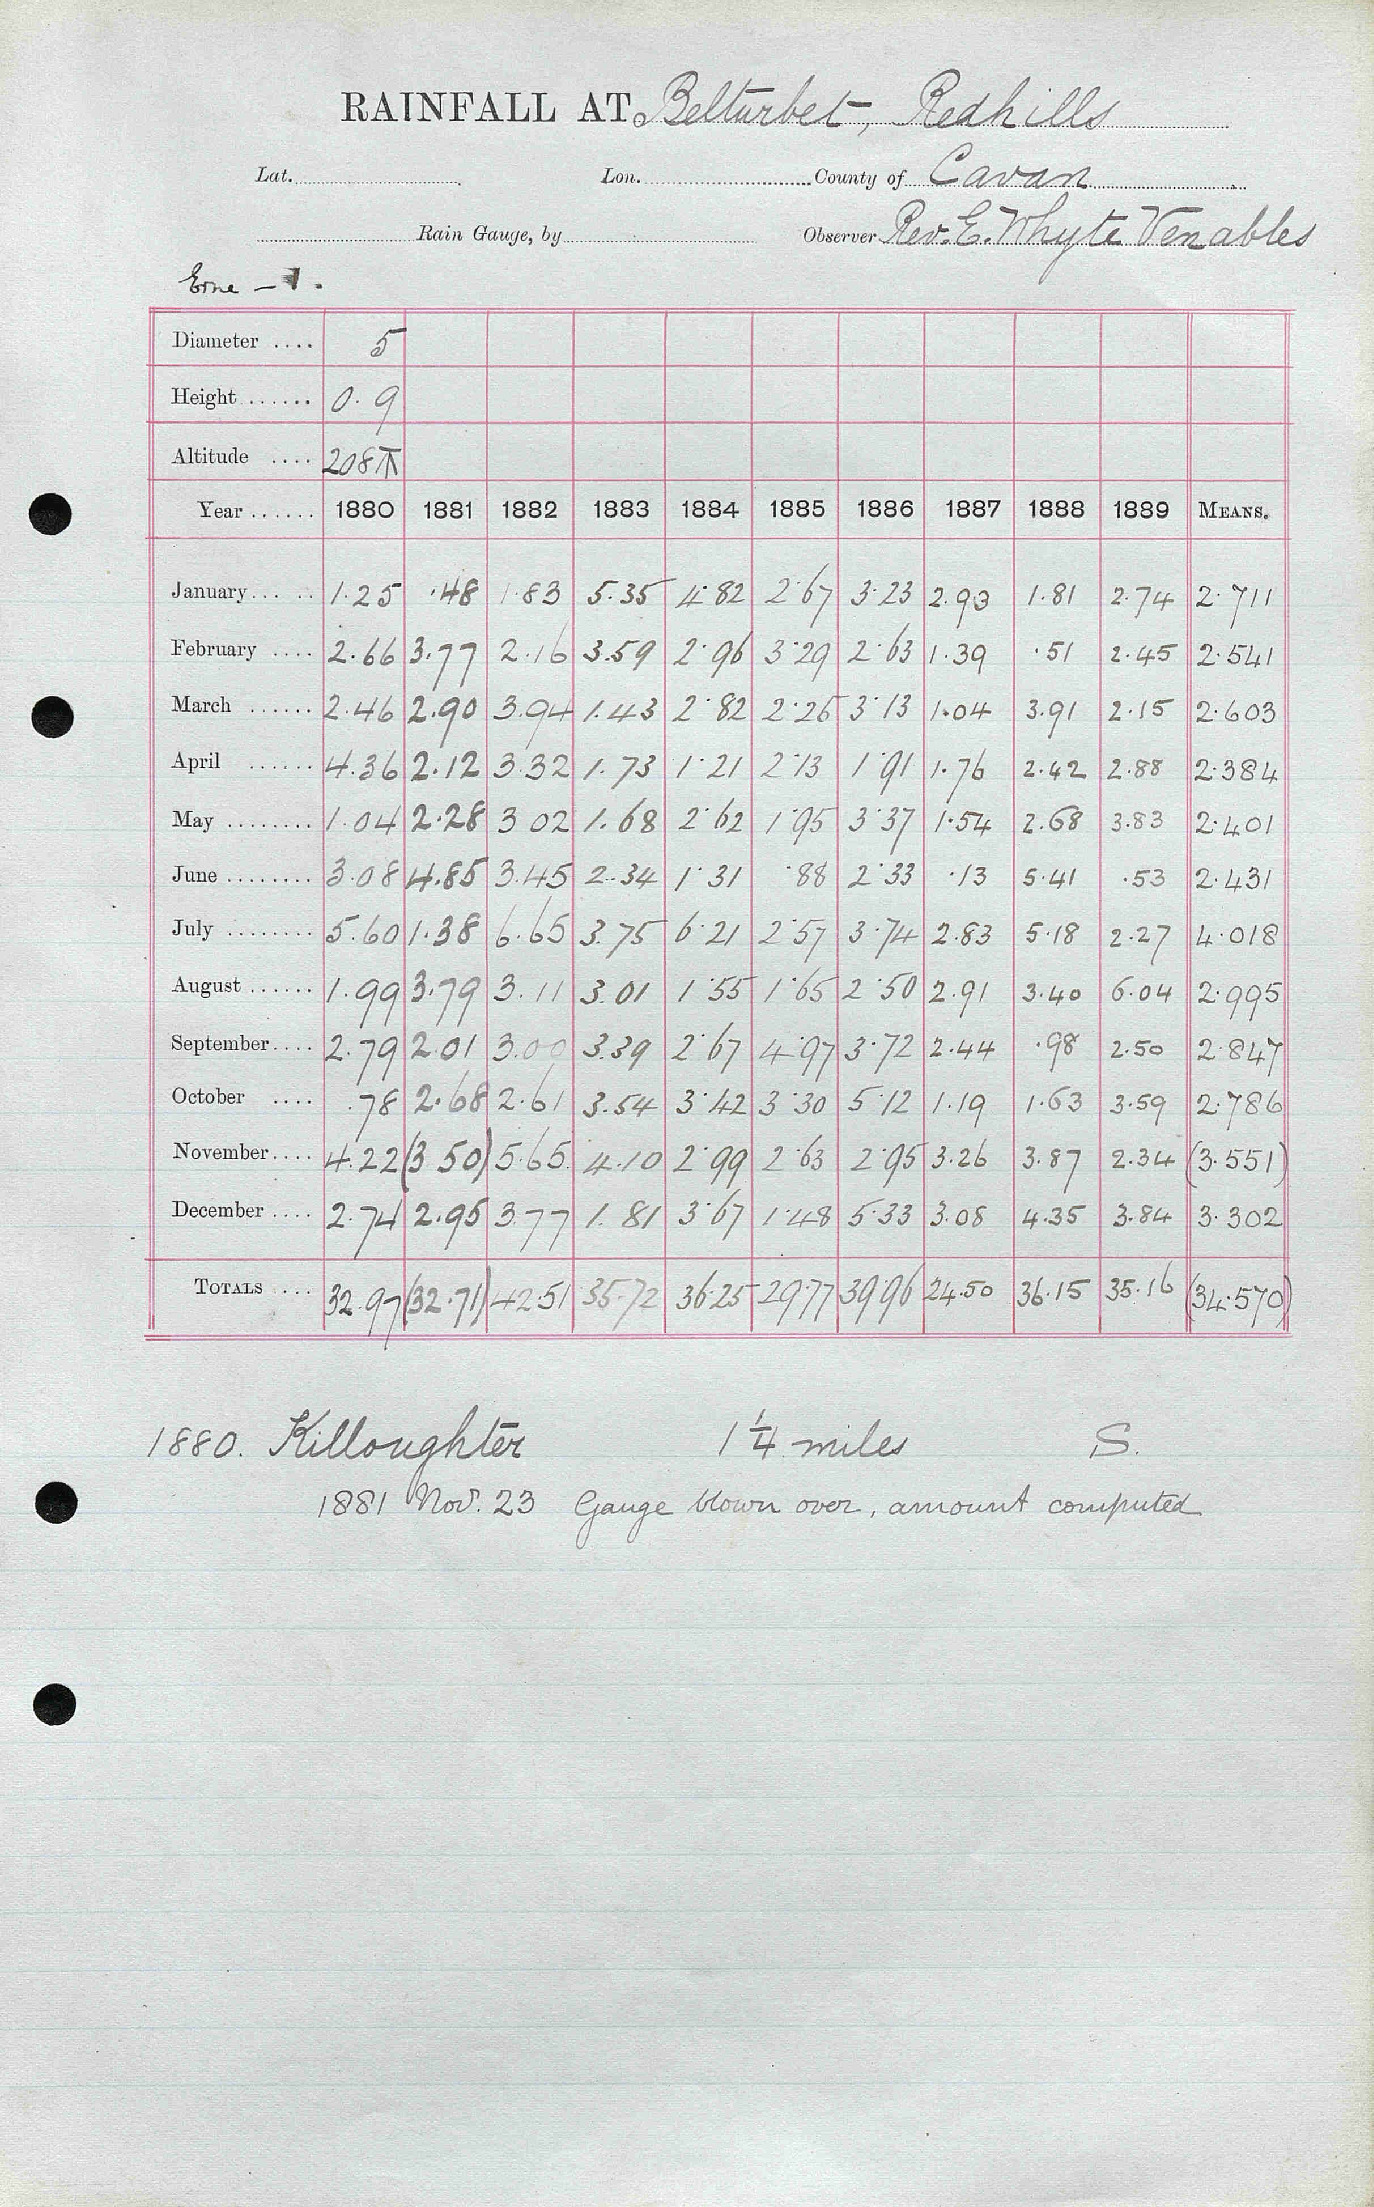 RAINFALL AT Belturbet, Redhills
Lat. Lon. County of Cavan
Rain Gauge, by Observer Rev. E. Whyte Venables
Erne - 1.
Diameter .... 5
Height ...... 0.9
Altitude .... 208 T
Year ...... 1880 1881 1882 1883 1884 1885 1886 1887 1888 1889 MEANS.
January ... .. 1.25 .48 1.83 5.35 4.82 2.67 3.23 2.93 1.81 2.74 2.711
February .... 2.66 3.77 2.16 3.59 2.96 3.29 2.63 1.39 .51 2.45 2.541
March ...... 2.46 2.90 3.94 1.43 2.82 2.26 3.13 1.04 3.91 2.15 2.603
April ...... 4.36 2.12 3.32 1.73 1.21 2.13 1.91 1.76 2.42 2.88 2.384
May ........ 1.04 2.28 3 02 1.68 2.62 1.95 3.37 1.54 2.68 3.83 2.401
June ........ 3.08 4.85 3.45 2.34 1.31 .88 2.33 .13 5.41 .53 2.431
July ........ 5.60 1.38 6.65 3.75 6.21 2.57 3.74 2.83 5.18 2.27 4.018
August ...... 1.99 3.79 3.11 3.01 1.55 1.65 2.50 2.91 3.40 6.04 2.995
September .... 2.79 2.01 3.00 3.39 2.67 4.97 3.72 2.44 .98 2.50 2.847
October .... .78 2.68 2.61 3.54 3.42 3.30 5.12 1.19 1.63 3.59 2.786
November .... 4.22 (3 50) 5.65 4.10 2.99 2.63 2.95 3.26 3.87 2.34 (3.551)
December .... 2.74 2.95 3.77 1.81 3.67 1.48 5.33 3.08 4.35 3.84 3.302
TOTALS ... 32.97 (32.71) 42.51 35.72 36.25 29.77 39.96 24.50 36.15 35.16 (34.570)
1880. Killoughter 1 1/4 miles S.
1881 Nov. 23 Gauge blown over, amount computed